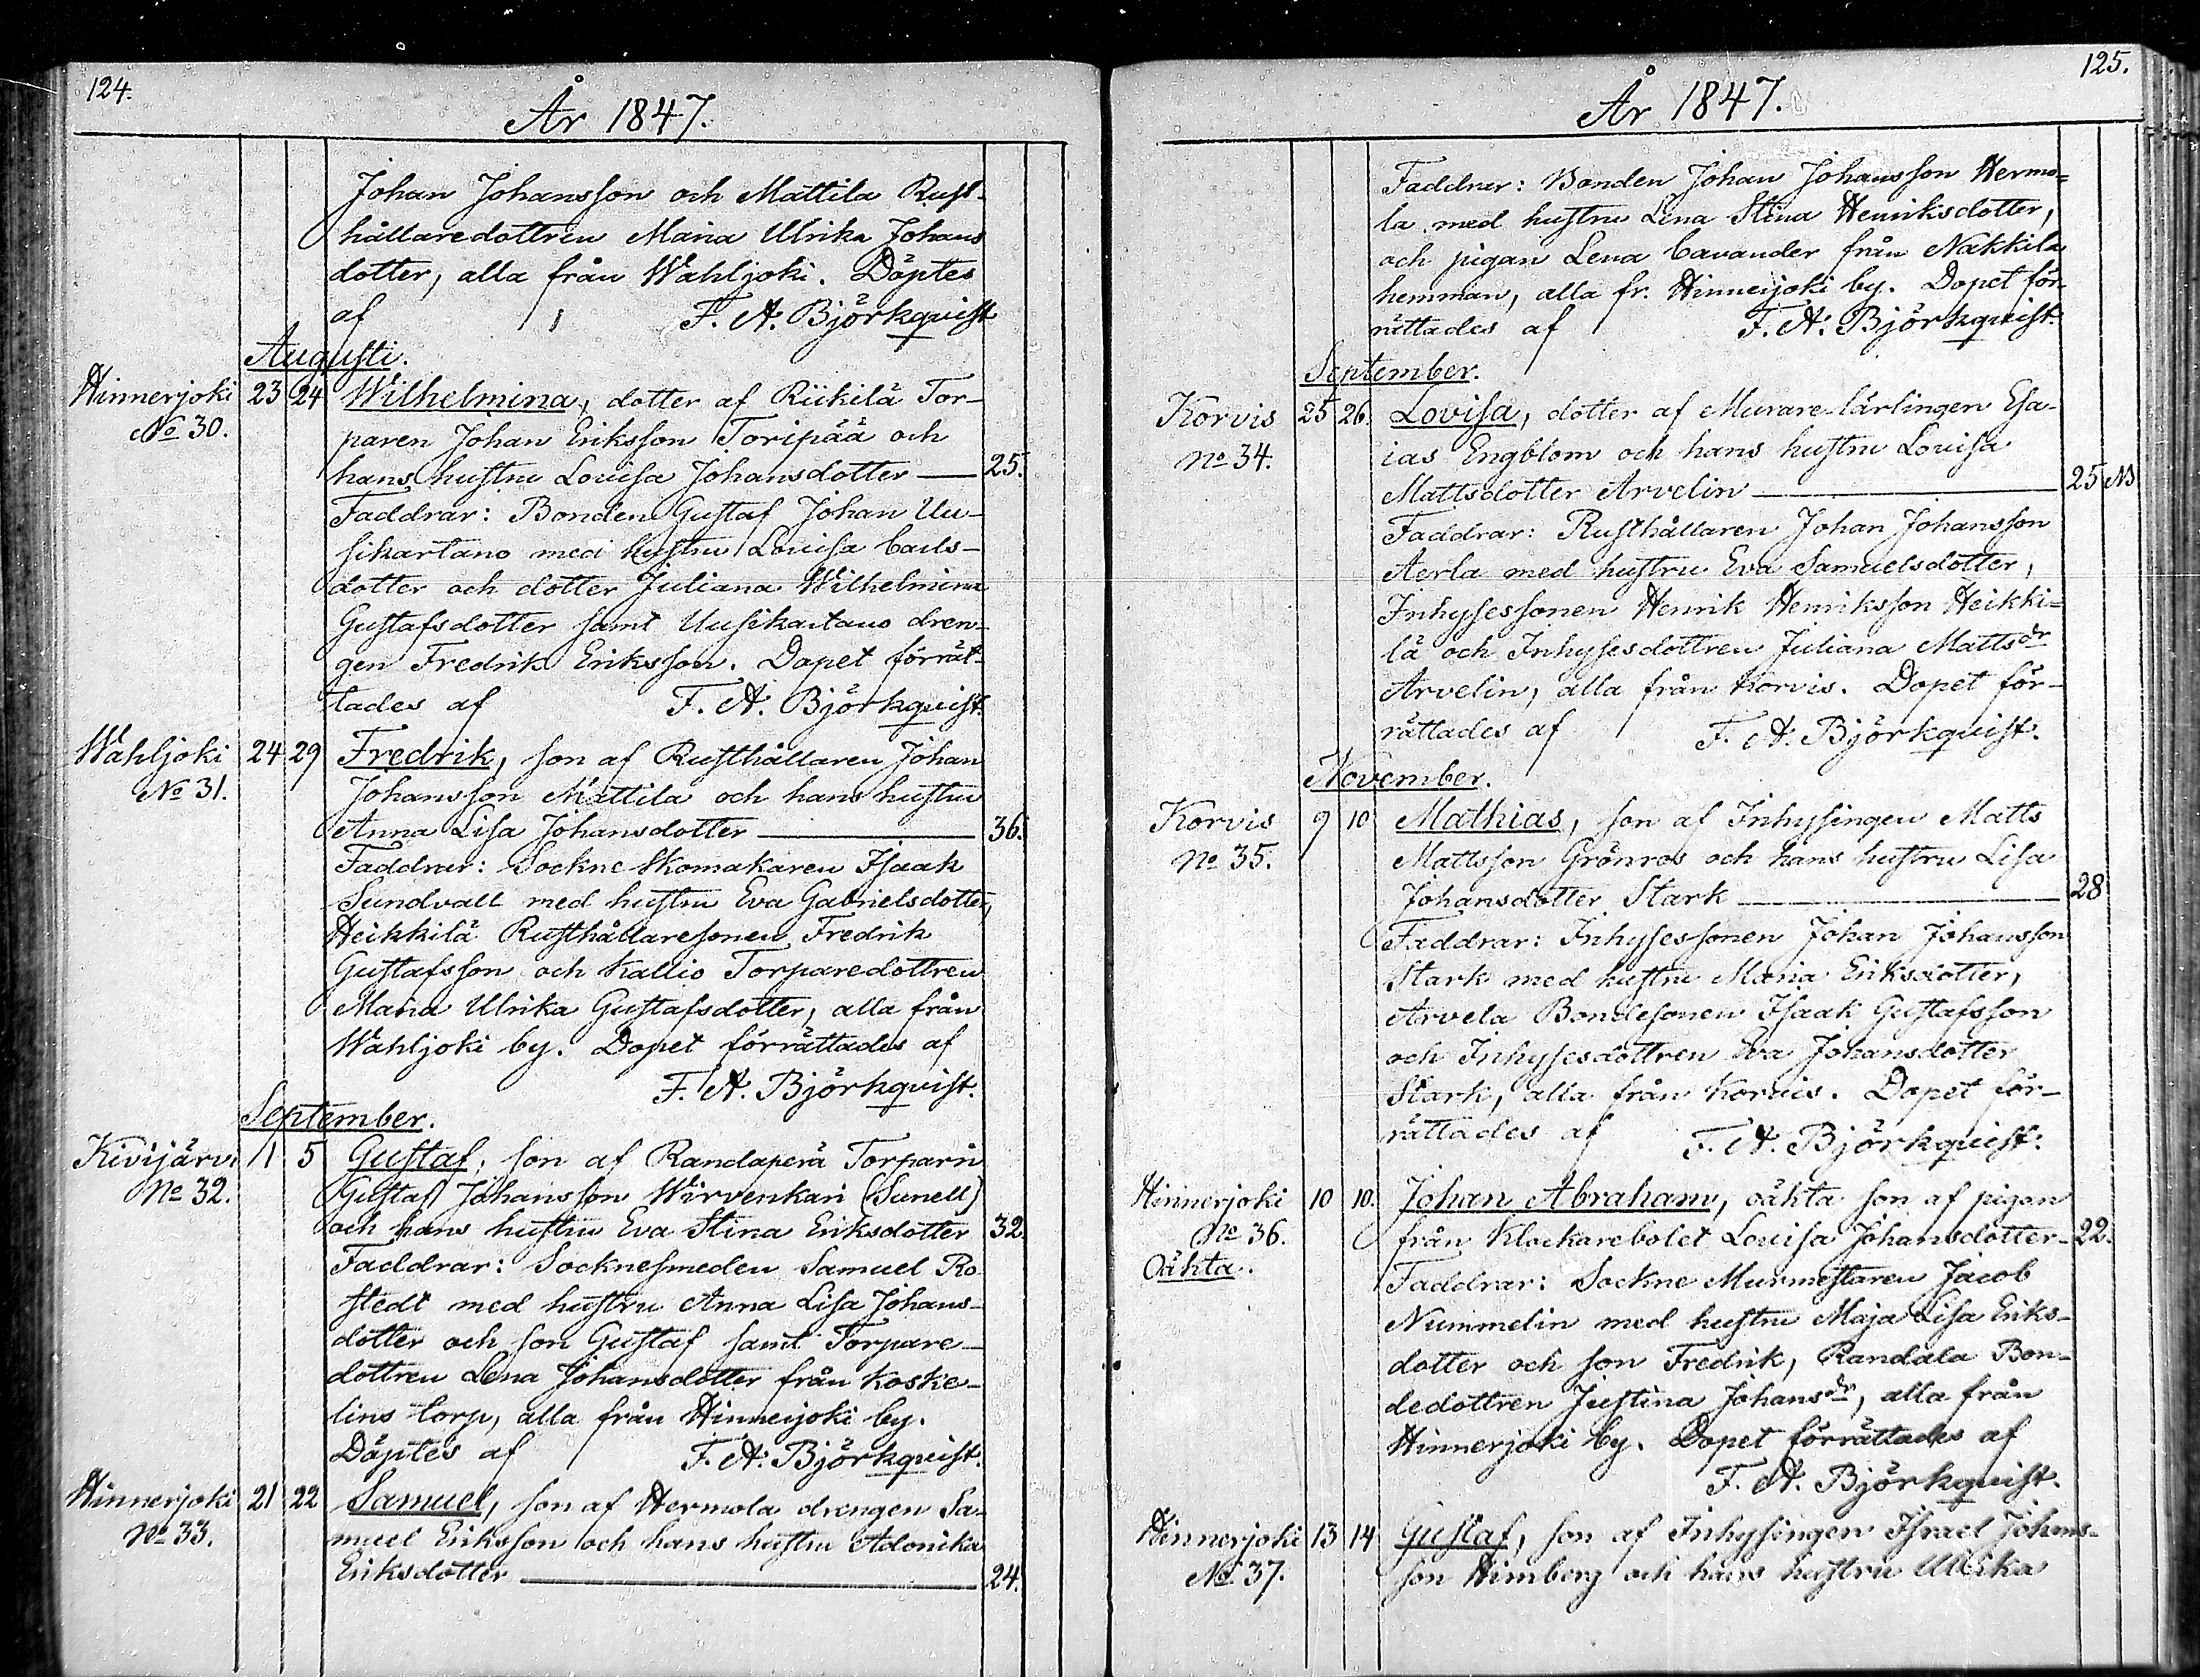 124.
År 1847.
Johan Johansson och Mattila Rust-
hållaredottren Maria Ulrika Johans
dotter, alla från Wahljoki. Döptes
af F. A. Björkqvist
Augusti.
Hinnerjoki 23 24 Wilhelmina, dotter af Riikilä Tor-
No 30. paren Johan Eriksson Toripää och
hans hustru Lovisa Johansdotter — 25.
Faddrar: Bonden Gustaf Johan Uu-
sikartano med hustru Lovisa Carls-
dotter och dotter Juliana Wilhelmina
Gustafsdotter samt Uusikartano dren-
gen Fredrik Eriksson. Dopet förrät-
tades af F. A. Björkqvist.
Wahljoki 24 29 Fredrik, son af Rusthållaren Johan
No 31. Johansson Mattila och hans hustru
Anna Lisa Johansdotter — 36.
Faddrar: Sockne Skomakaren Isaak
Sundvall med hustru Eva Gabrielsdotter,
Heikkilä Rusthållaresonen Fredrik
Gustafsson och Kallio Torparedottren
Maria Ulrika Gustafsdotter, alla från
Wahljoki by. Dopet förrättades af
F. A. Björkqvist.
September.
Kivijärvi 1 5 Gustaf, son af Randaperä Torparn
No 32. Gustaf Johansson Wirvenkari (Sunell)
och hans hustru Eva Stina Eriksdotter 32.
Faddrar: Socknesmeden Samuel Ro
stedt med hustru Anna Lisa Johans-
dotter och son Gustaf samt Torpare-
dottren Lena Johansdotter från Koske-
lins torp, alla från Hinnerjoki by.
Döptes af F. A. Björkqvist.
Hinnerjoki 21 22 Samuel, son af Hermola drengen Sa-
No 33. muel Eriksson och hans hustru Adonika
Eriksdotter — 24.
125.
År 1847.
Faddrar: Bonden Johan Johansson Hermo=
la med hustru Lena Stina Henriksdotter,
och pigan Lena Cavander från Nakkila
hemman, alla fr. Hinnerjoki by. Dopet för-
rättades af F. A. Björkqvist.
September.
Korvis 25 26. Lovisa, dotter af Murare-lärlingen Esa-
No 34. ias Engblom och hans hustru Lovisa
Mattsdotter Arvelin — 25
Faddrar: Rusthållaren Johan Johansson
Aerla med hustru Eva Samuelsdotter,
Inhysessonen Henrik Henriksson Heikki=
lä och Inhysesdottren Juliana Mattsdr
Arvelin, alla från Korvis. Dopet för-
rättades af F. A. Björkqvist.
November.
Korvis 9 10 Mathias, son af Inhysingen Matts
No 35. Mattsson Grönros och hans hustru Lisa
Johansdotter Stark — 28
Faddrar: Inhysessonen Johan Johansson
Stark med hustru Maria Eriksdotter,
Arvela Bondesonen Isaak Gustafsson
och Inhysesdottren Eva Johansdotter
Stark, alla från Korvis. Dopet för-
rättades af F. A. Björkqvist.
Hinnerjoki 10 10. Johan Abraham, oäkta son af pigan
No 36. från Klockarebolet Lovisa Johansdotter - 22.
Oäkta. Faddrar: Sockne Murmestaren Jacob
Nummelin med hustru Maja Lisa Eriks-
dotter och son Fredrik, Randala Bon-
dedottren Justina Johansdr, alla från
Hinnerjoki by. Dopet förrättades af
F. A. Björkqvist.
Hinnerjoki 13 14 Gustaf, son af Inhysingen Israel Johans-
No 37. son Himberg och hans hustru Ulrika